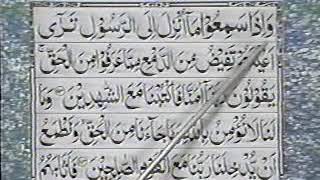 وَاِذَا سَمِعُوْا مَاۤ اُنْزِلَ اِلَى الرَّسُوْلِ تَرٰۤى
اَعْيُنَهُمْ تَفِيْضُ مِنَ الدَّمْعِ مِمَّا عَرَفُوْا مِنَ الْحَقِّ
يَقُوْلُوْنَ رَبَّنَاۤ اٰمَنَّا فَاكْتُبْنَا مَعَ الشّٰهِدِيْنَ وَمَا
لَنَا لَا نُؤْمِنُ بِاللّٰهِ وَمَا جَآءَنَا مِنَ الْحَقِّ وَنَطْمَعُ
اَنْ يُّدْخِلَنَا رَبُّنَا مَعَ الْقَوْمِ الصّٰلِحِيْنَ فَاَثَابَهُمُ